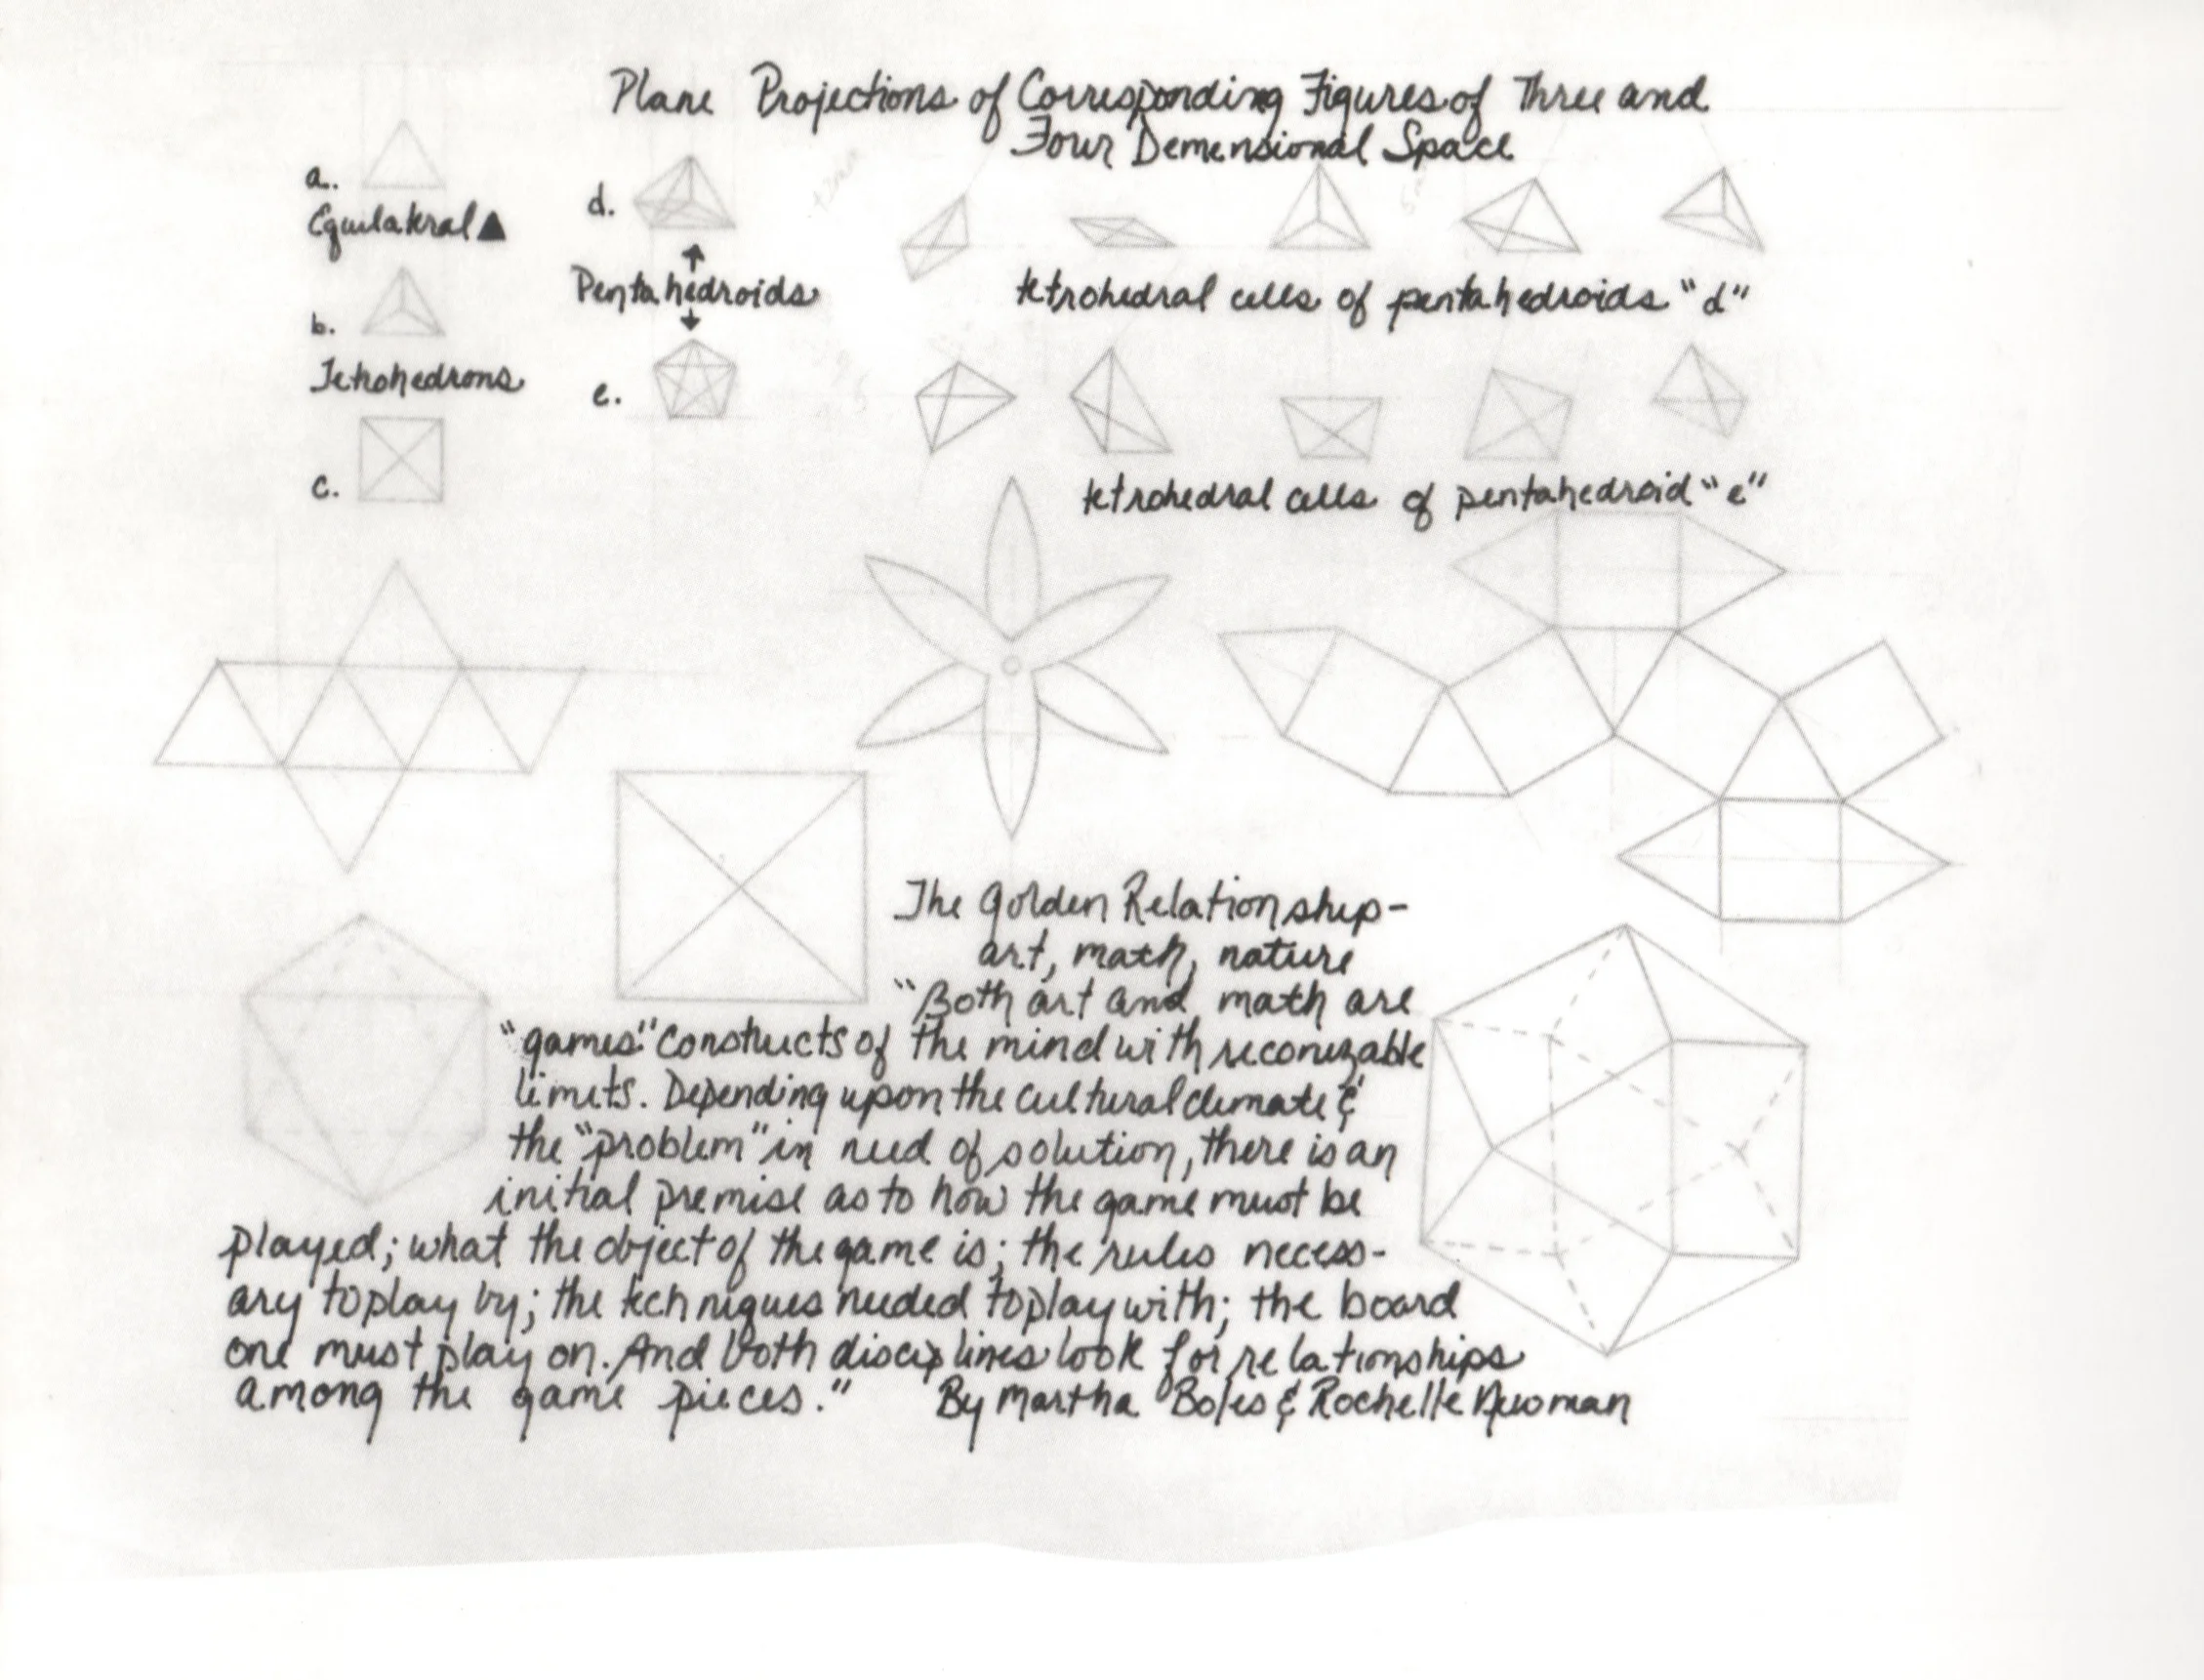 Plane Projections of Corresponding Figures of Three and
Four Demensional Space
a.
Equilateral▲
b.
Tetrohedrons
c.
d.
Pentahedroids
e.
tetrohedral cells of pentahedroids "d"
tetrohedral cells of pentahedroid "e"
The Golden Relationship-
art, math, nature
"Both art and math are
"games" constructs of the mind with reconizable
limits. Depending upon the cultural climate &
the "problem" in need of solution, there is an
initial premise as to how the game must be
played; what the object of the game is; the rules necess-
ary to play by; the techniques needed to play with; the board
one must play on. And both disciplines look for relationships
among the game pieces." By Martha Boles & Rochelle Newman